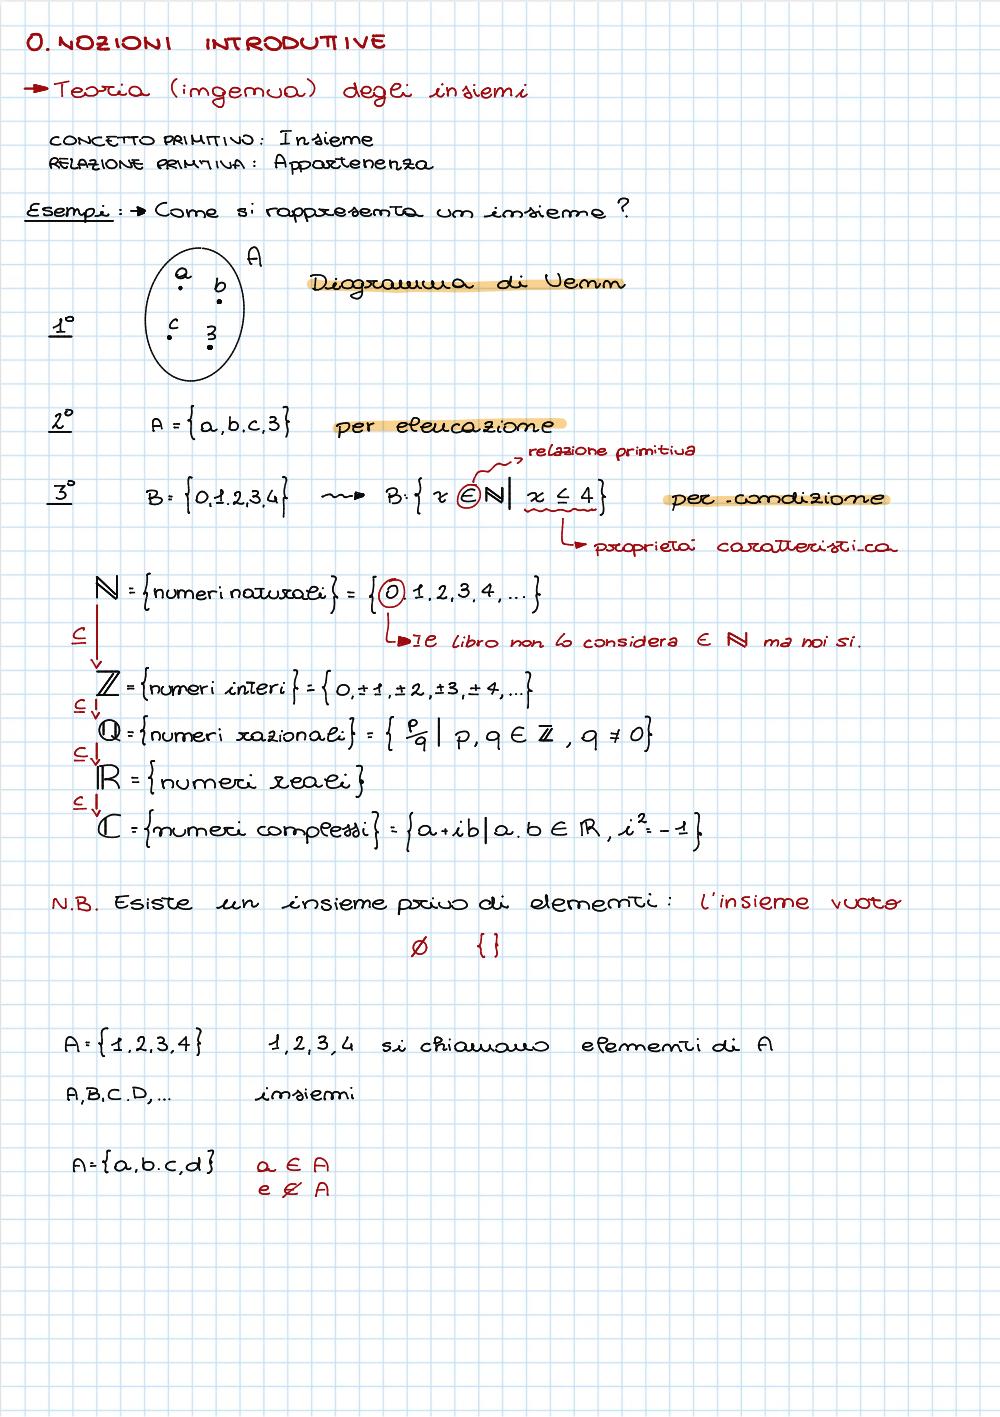 0. NOZIONI INTRODUTTIVE
→ Teoria (ingenua) degli insiemi
CONCETTO PRIMITIVO: Insieme
RELAZIONE PRIMITIVA: Appartenenza
Esempi: → Come si rappresenta un insieme?
A
a
b
Diagramma di Venn
1°
c
3
2° A = {a,b,c,3} per elencazione
relazione primitiva
3° B = {0,1,2,3,4} ⇝ B = { x ∈ ℕ | x ≤ 4 } per condizione
proprietà caratteristica
ℕ = {numeri naturali} = {0,1,2,3,4,...}
⊆ Il libro non lo considera ∈ ℕ ma noi si.
ℤ = {numeri interi} = {0,±1,±2,±3,±4,...}
⊆
ℚ = {numeri razionali} = { p/q | p,q ∈ ℤ, q ≠ 0}
⊆
ℝ = {numeri reali}
⊆
ℂ = {numeri complessi} = {a+ib | a,b ∈ ℝ, i² = -1}
N.B. Esiste un insieme privo di elementi: l'insieme vuoto
∅ {}
A = {1,2,3,4} 1,2,3,4 si chiamano elementi di A
A,B,C,D,... insiemi
A = {a,b,c,d} a ∈ A
e ∉ A